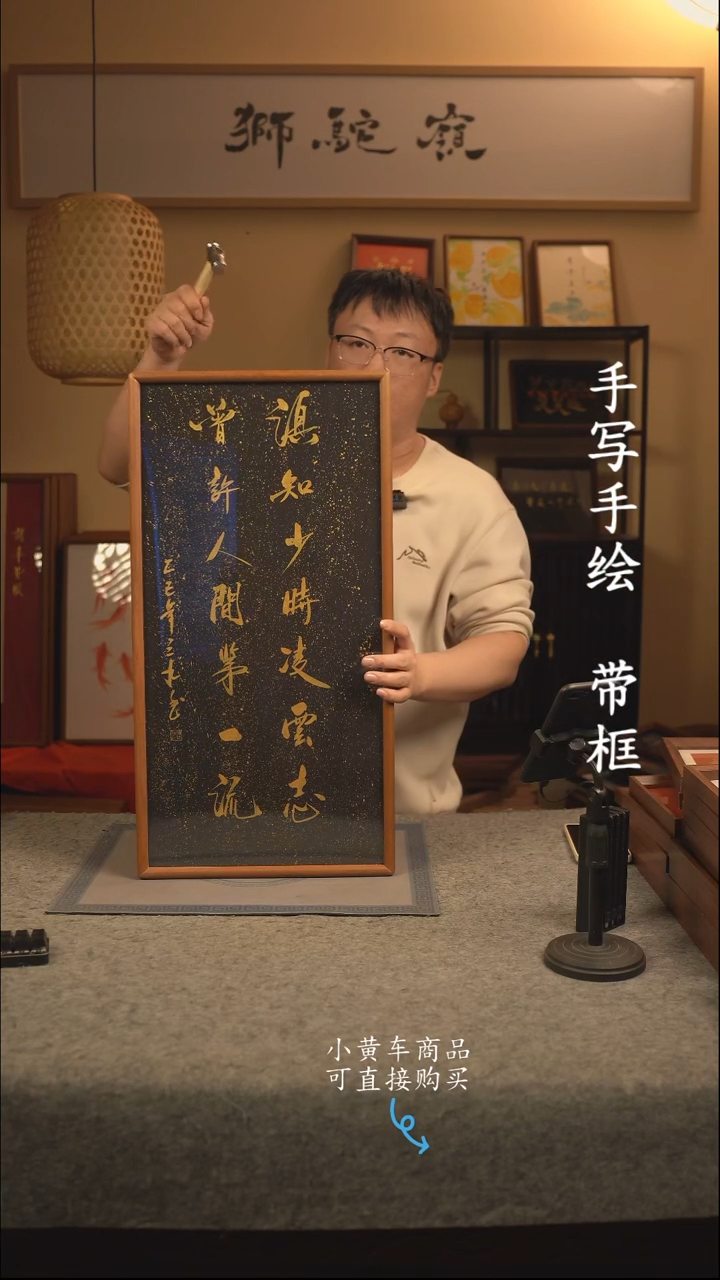 獅駝嶺
須知少時凌雲志
曾許人間第一流
乙巳年三木書
手写手绘 带框
小黄车商品
可直接购买